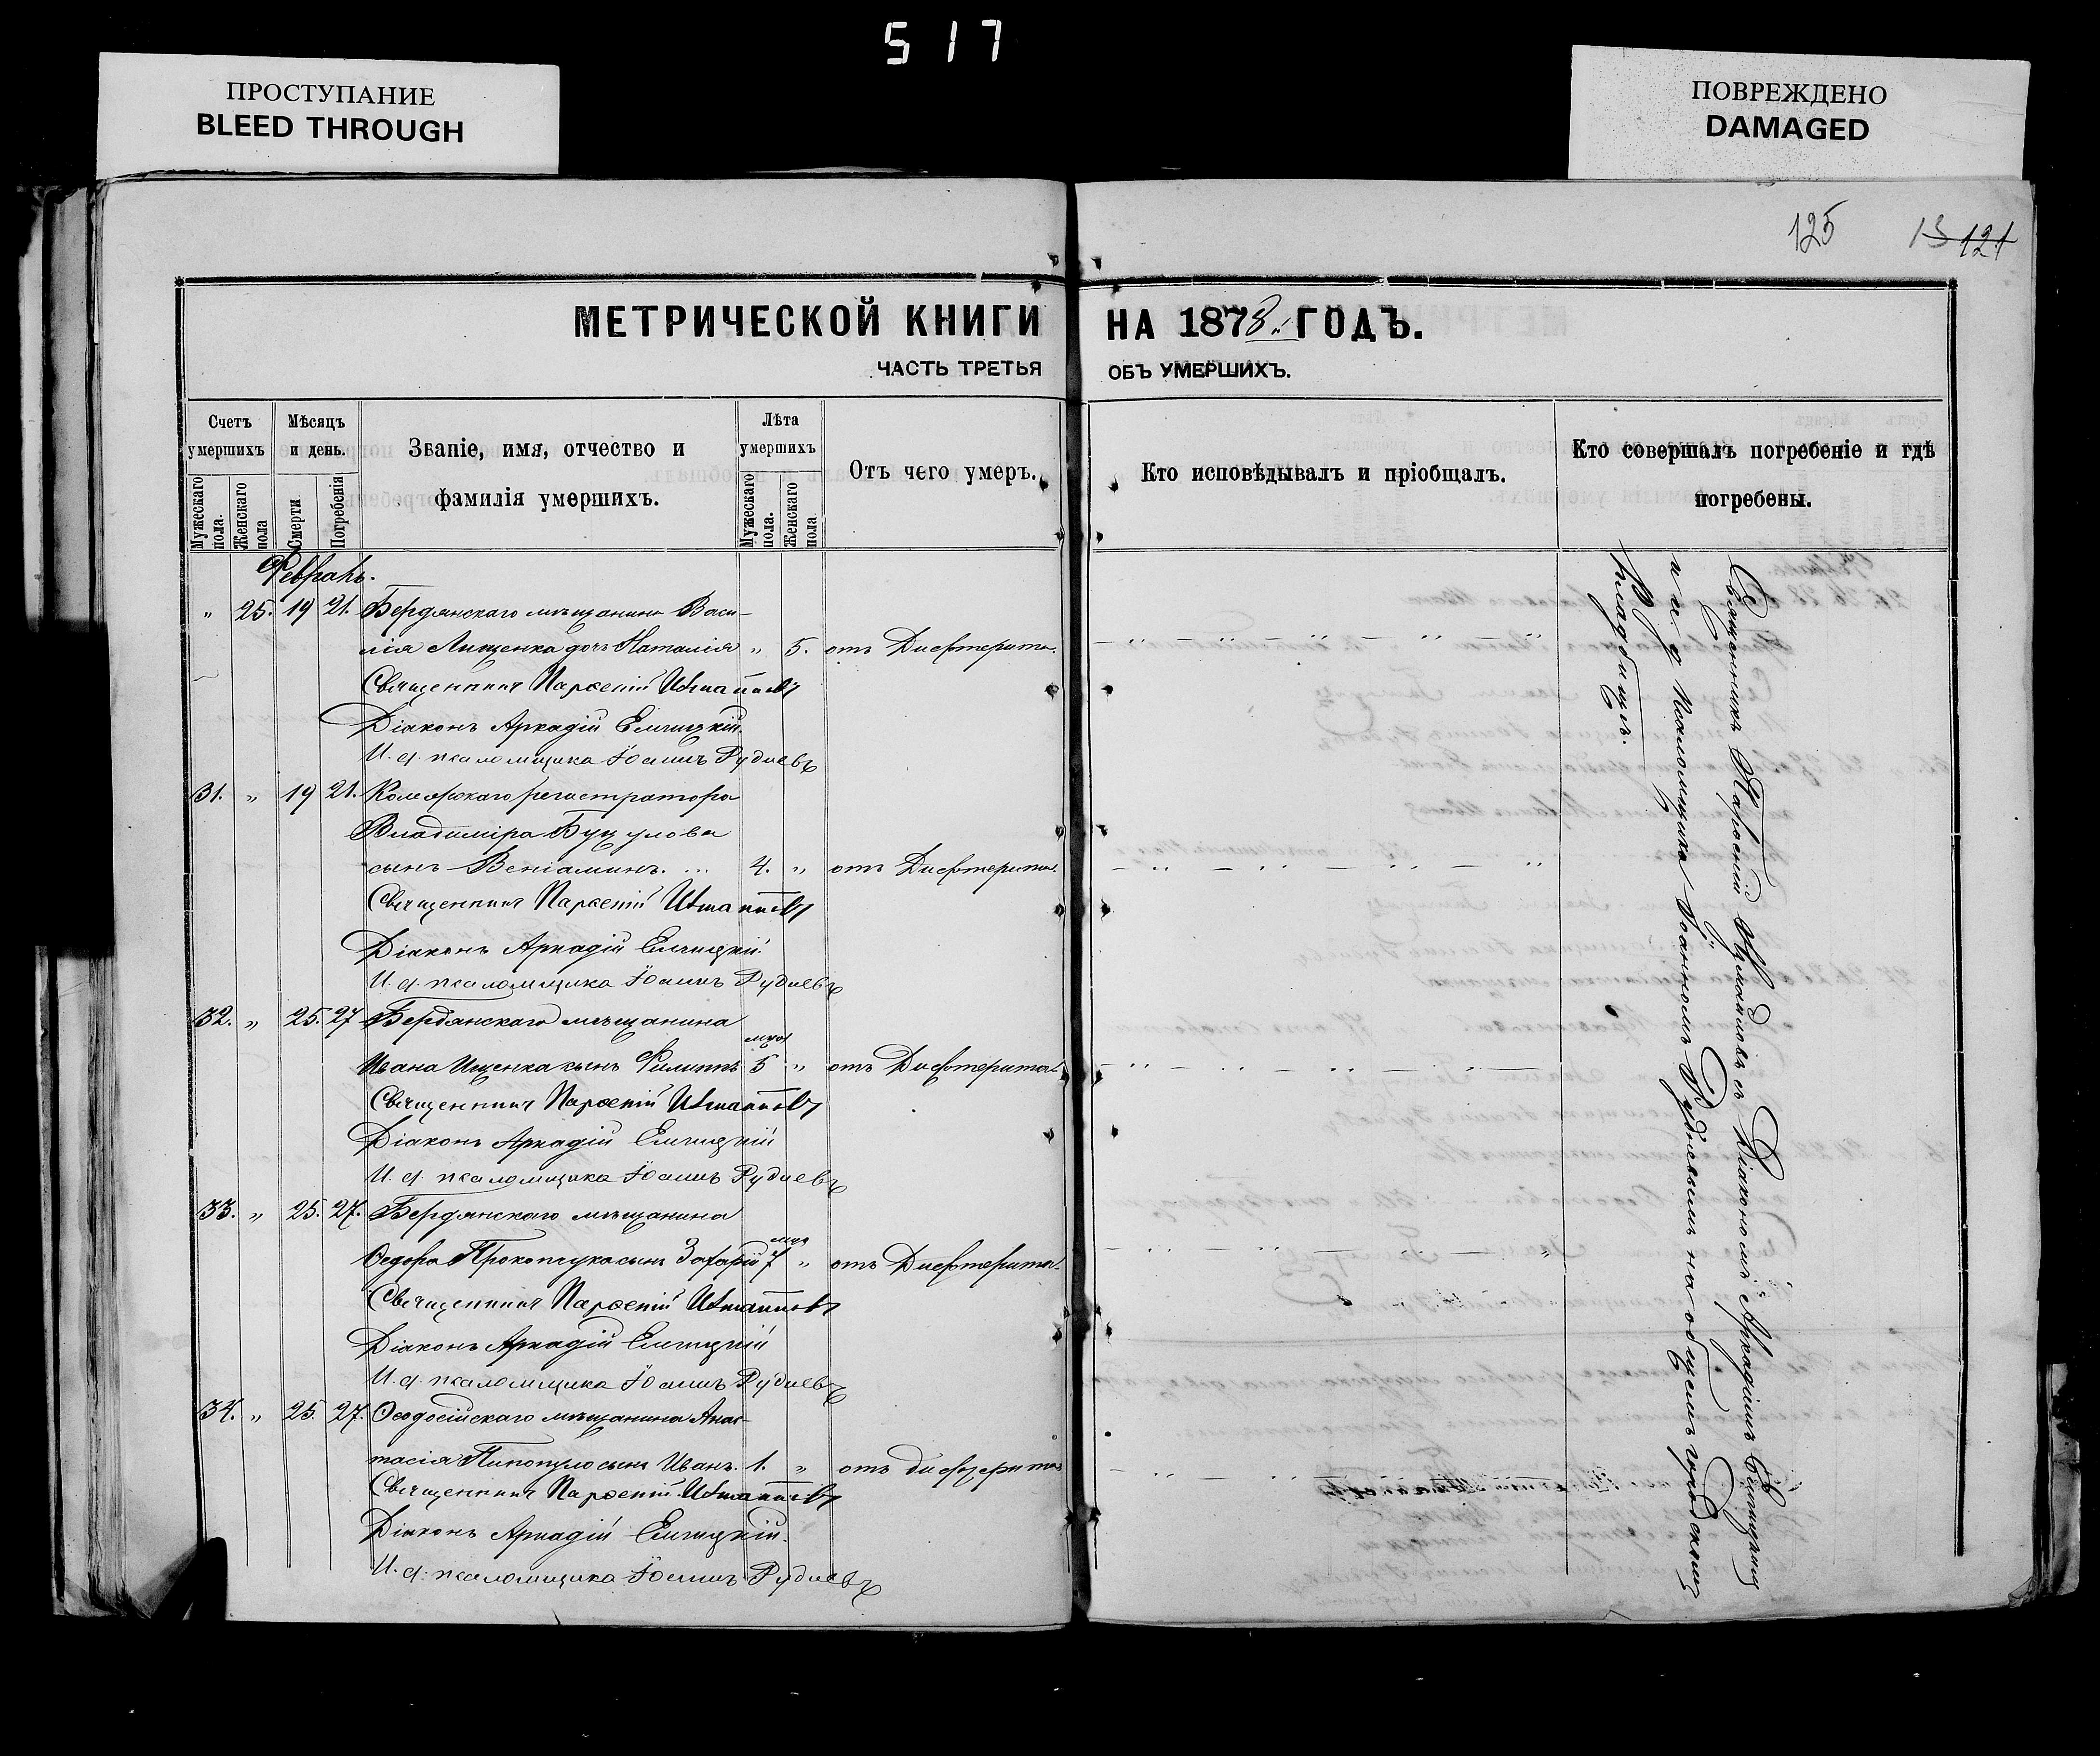 517
ПРОСТУПАНИЕ
BLEED THROUGH
ПОВРЕЖДЕНО
DAMAGED
125
13 121
МЕТРИЧЕСКОЙ КНИГИ НА 1878 ГОДЪ.
ЧАСТЬ ТРЕТЬЯ ОБЪ УМЕРШИХЪ.
Счетъ умершихъ
Мужескаго пола.
Женскаго пола
Мѣсяцъ и день.
Смерти
Погребенія
Званіе, имя, отчество и
фамилія умершихъ.
Лѣта умершихъ
Мужескаго пола.
Женскаго пола
Отъ чего умеръ.
Кто исповѣдывалъ и пріобщалъ.
Кто совершалъ погребеніе и гдѣ
погребены.
Февраль.
" 25. 19 21. Бердянскаго мѣщанина Васи-
лія Лищенка дочь Наталія " 5. отъ Дифтерита.
Священникъ Парѳеній
Діаконъ Аркадій
И. д. псаломщика Іоаннъ Рудневъ
31. " 19 21. Колежскаго регистратора
Владиміра
сынъ Веніаминъ. 4. " отъ Дифтерита.
Священникъ Парѳеній
Діаконъ Аркадій
И. д. псаломщика Іоаннъ Рудневъ
32. " 25. 27 Бердянскаго мѣщанина
Ивана Ищенка сынъ Филиппъ 5 " отъ Дифтерита.
Священникъ Парѳеній
Діаконъ Аркадій
И. д. псаломщика Іоаннъ Рудневъ
33. " 25. 27. Бердянскаго мѣщанина
Ѳедора Прокопчука сынъ Захарій 7 " отъ Дифтерита.
Священникъ Парѳеній
Діаконъ Аркадій
И. д. псаломщика Іоаннъ Рудневъ
34. " 25. 27. Ѳеодосійскаго мѣщанина Анас-
тасія сынъ Иванъ. 1. " отъ дифтерита
Священникъ Парѳеній
Діаконъ Аркадій
И. д. псаломщика Іоаннъ Рудневъ
Священникъ Парѳеній съ Діакономъ Аркадіемъ
и и. д. Псаломщика Іоанномъ Рудневымъ на общемъ городскомъ
кладбищѣ.